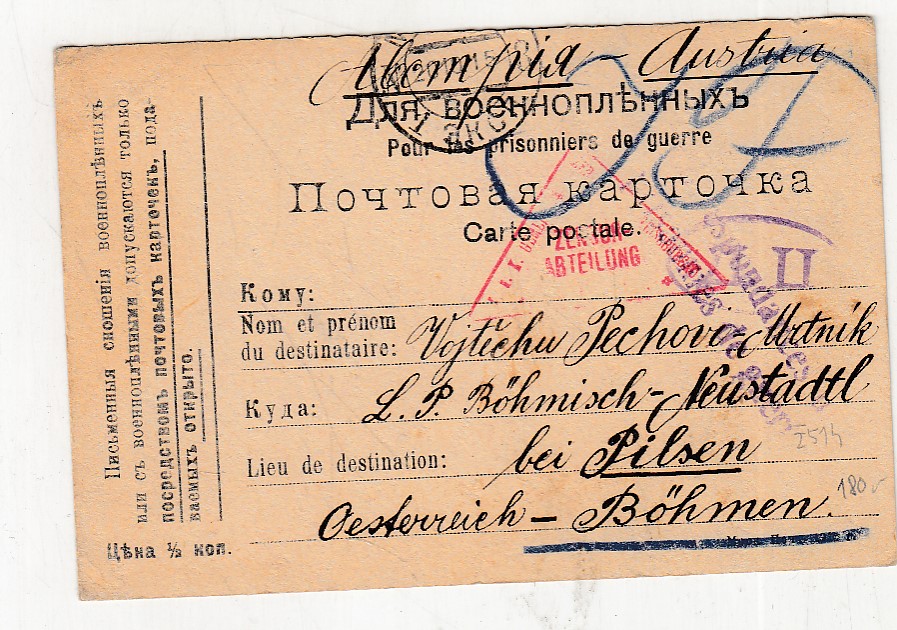 Австрія – Austria
Для военноплѣнныхъ
Pour les prisonniers de guerre
Почтовая карточка
Carte postale.
ZENSUR-
ABTEILUNG
II
Кому:
Nom et prénom
du destinataire: Vojtěchu Pechovo-Mrtník
Куда: L. P. Böhmisch-Neustadtl
Lieu de destination: bei Pilsen
Oesterreich – Böhmen.
180
Письменныя сношенія военноплѣнныхъ
или съ военноплѣнными допускаются только
посредствомъ почтовыхъ карточекъ, пода-
ваемыхъ открыто.
Цѣна ½ коп.